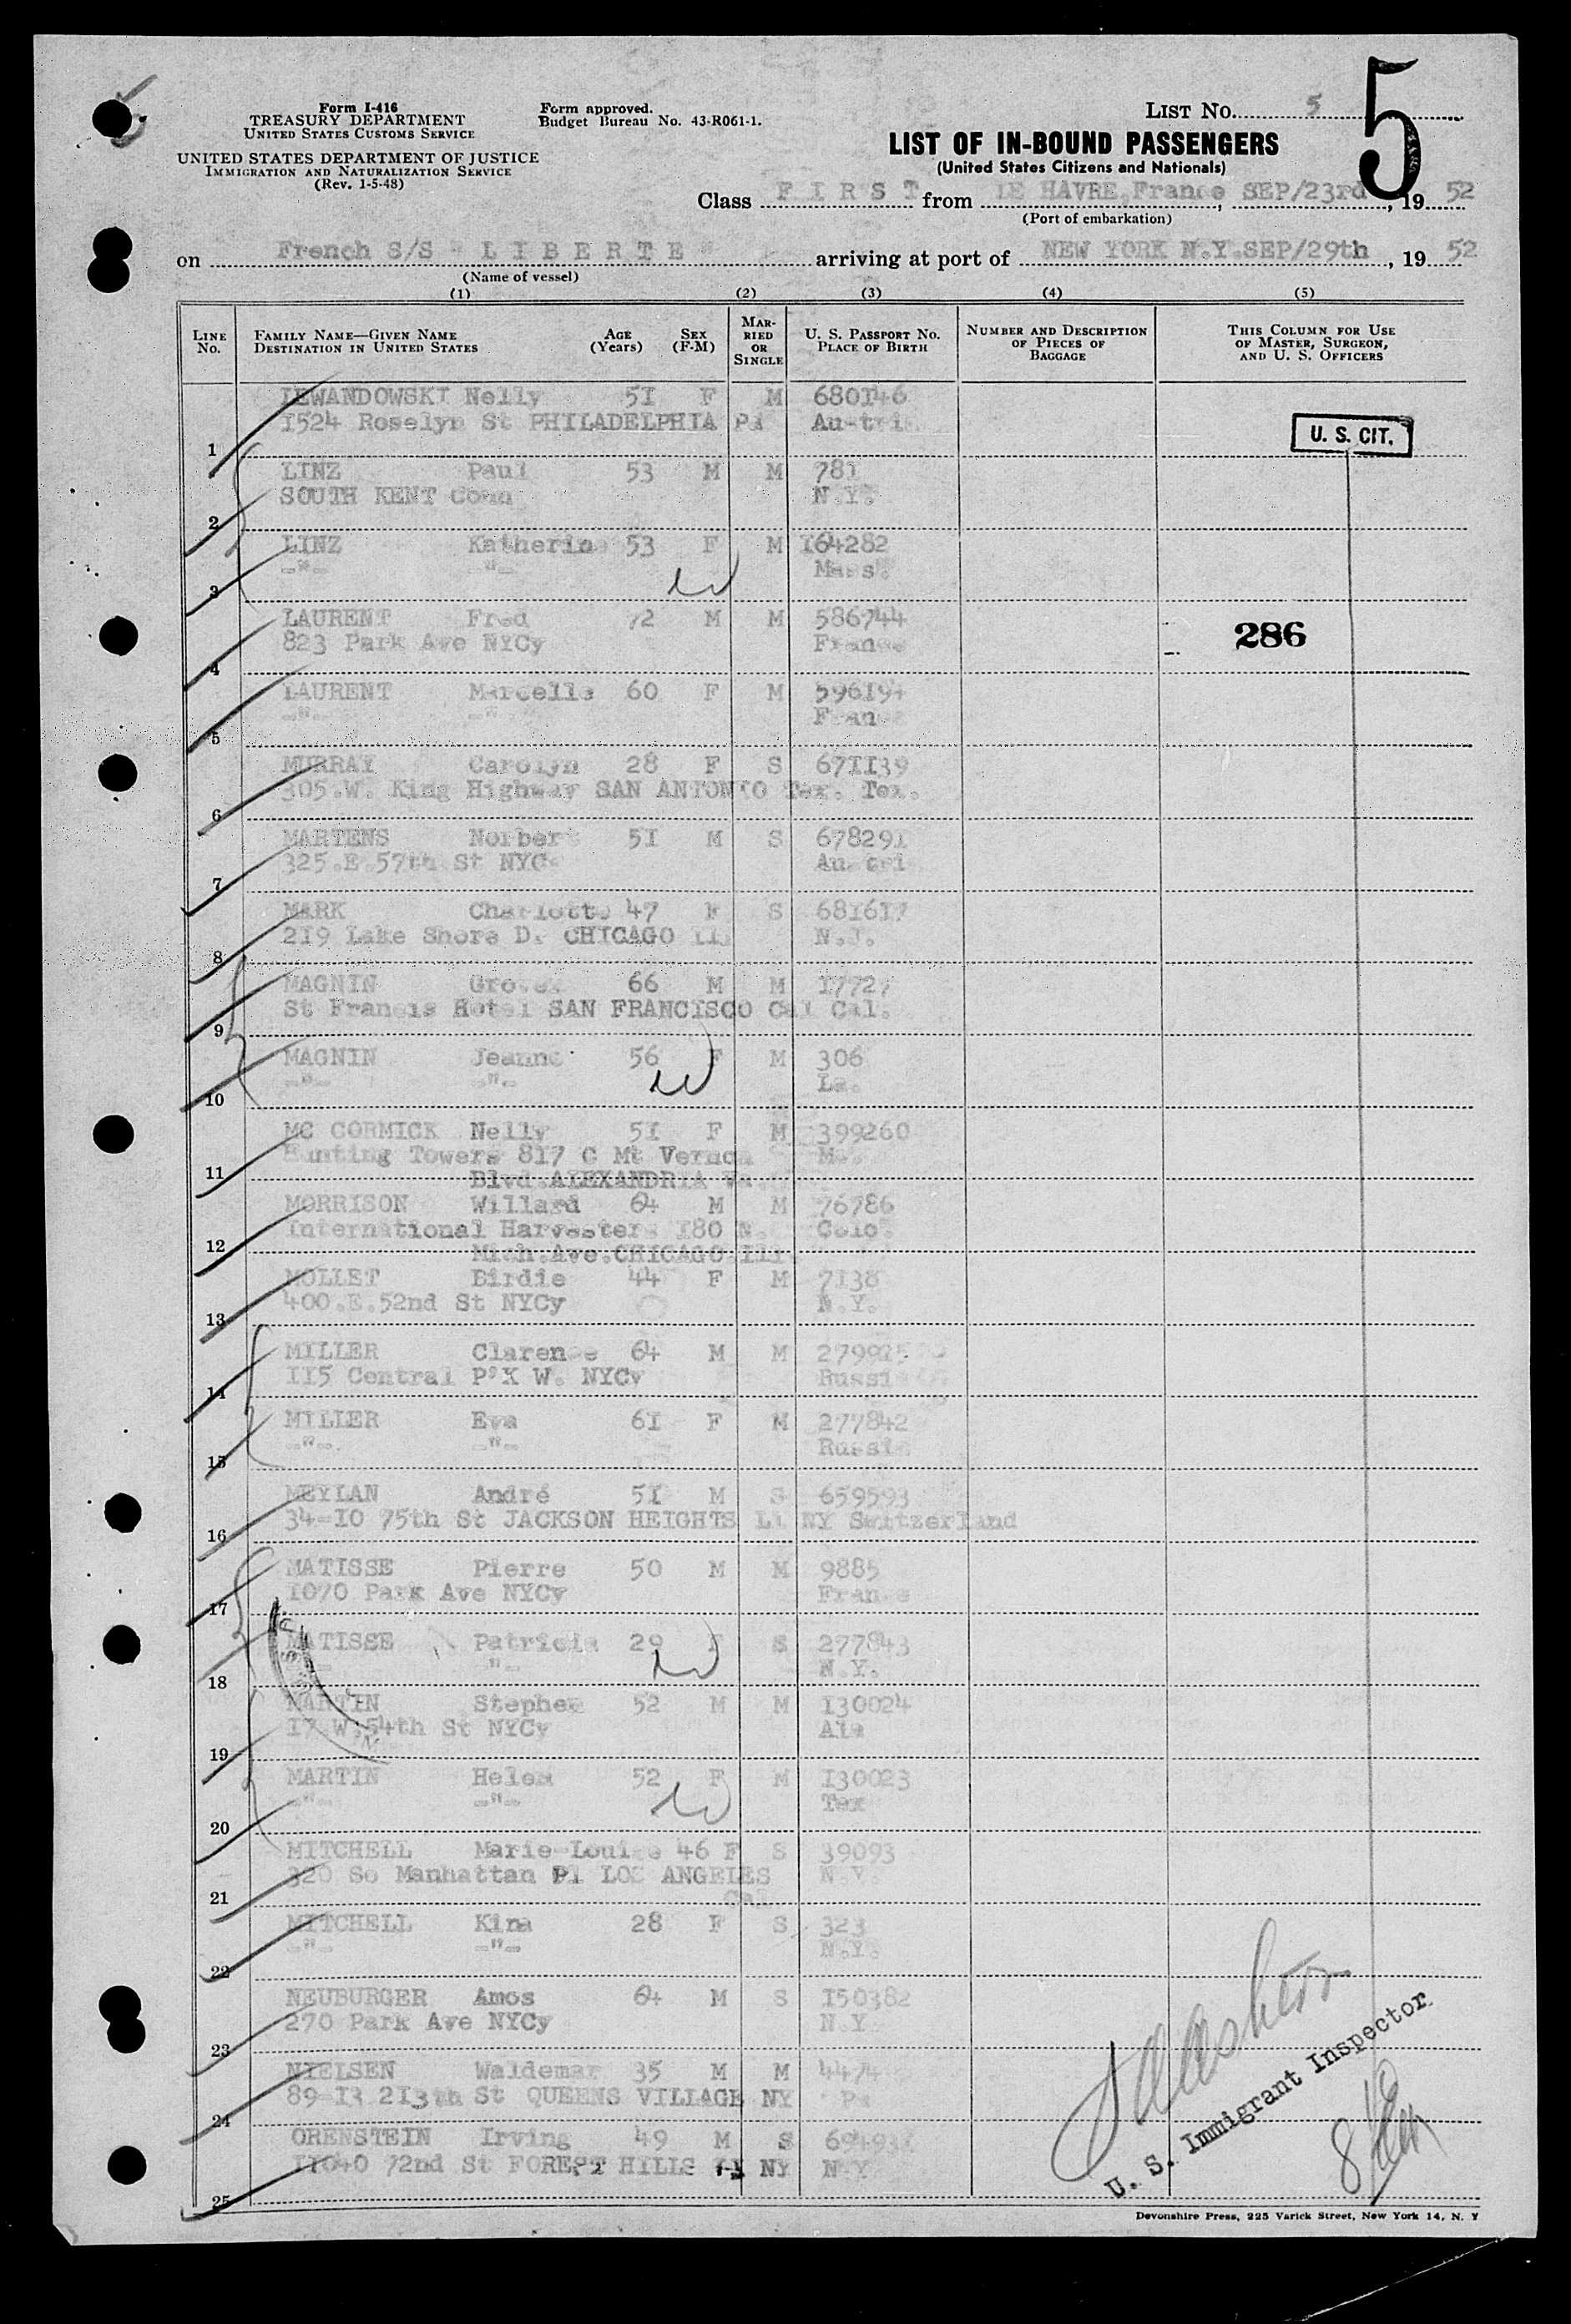 Form I-416
TREASURY DEPARTMENT
UNITED STATES CUSTOMS SERVICE
UNITED STATES DEPARTMENT OF JUSTICE
IMMIGRATION AND NATURALIZATION SERVICE
(Rev. 1-5-48)
Form approved.
Budget Bureau No. 43-R061-1.
LIST No. 5
5
LIST OF IN-BOUND PASSENGERS
(United States Citizens and Nationals)
Class FIRST from LE HAVRE, France SEP/23rd, 19 52
(Port of embarkation)
on French S/S "LIBERTE" arriving at port of NEW YORK N.Y. SEP/29th, 19 52
(Name of vessel)
(1) (2) (3) (4) (5)
LINE No. FAMILY NAME—GIVEN NAME DESTINATION IN UNITED STATES AGE (Years) SEX (F-M) MARRIED OR SINGLE U. S. PASSPORT No. PLACE OF BIRTH NUMBER AND DESCRIPTION OF PIECES OF BAGGAGE THIS COLUMN FOR USE OF MASTER, SURGEON, AND U. S. OFFICERS
LEWANDOWSKI Nelly 51 F M 680146
1 1524 Roselyn St PHILADELPHIA Pa
U. S. CIT.
LINZ Paul 53 M M 781
2 SOUTH KENT Conn N.Y.
LINZ Katherine 53 F M 164282
3 -"- -"- Mass.
LAURENT Fred 72 M M 586744
4 823 Park Ave NYCy France
286
LAURENT Marcelle 60 F M 596194
5 -"- -"- France
MURRAY Carolyn 28 F S 671139
6 305.W. King Highway SAN ANTONIO Tex. Tex.
MARTENS Norbert 51 M S 678291
7 325.E.57th St NYC
MARK Charlotte 47 F S 681617
8 219 Lake Shore Dr CHICAGO Ill N.J.
MAGNIN Grover 66 M M 17727
9 St Francis Hotel SAN FRANCISCO Cal Cal.
MAGNIN Jeanne 56 F M 306
10 -"- -"- La.
MC CORMICK Nelly 51 F M 399260
11 Hunting Towers 817 C Mt Vernon
Blvd.ALEXANDRIA Va.
MORRISON Willard 64 M M 76786
12 International Harvester 180 N. Colo.
Mich.Ave.CHICAGO.Ill.
MOLLET Birdie 44 F M 7138
13 400.E.52nd St NYCy N.Y.
MILLER Clarence 64 M M
14 115 Central P°K W. NYCy Russia
MILLER Eva 61 F M 277842
15 -"- -"- Russia
MEYLAN André 51 M S 659593
16 34-10 75th St JACKSON HEIGHTS LI NY Switzerland
MATISSE Pierre 50 M M 9885
17 1070 Park Ave NYCy France
MATISSE Patricia 29 F S 277843
18 -"- N.Y.
MARTIN Stephen 52 M M 130024
19 17.W.54th St NYCy Ala
MARTIN Helen 52 F M 130023
20 -"- -"- Tex
MITCHELL Marie-Louise 46 F S 39093
21 320 So Manhattan Pl LOS ANGELES N.Y.
Cal
MITCHELL Kira 28 F S 323
22 -"- -"- N.Y.
NEUBURGER Amos 64 M S 150382
23 270 Park Ave NYCy N.Y
NIELSEN Waldemar 35 M M 4474
24 89-13 213th St QUEENS VILLAGE NY Pa
ORENSTEIN Irving 49 M S
25 11040 72nd St FOREST HILLS LI NY N.Y
U. S. Immigrant Inspector
Devonshire Press, 225 Varick Street, New York 14, N. Y